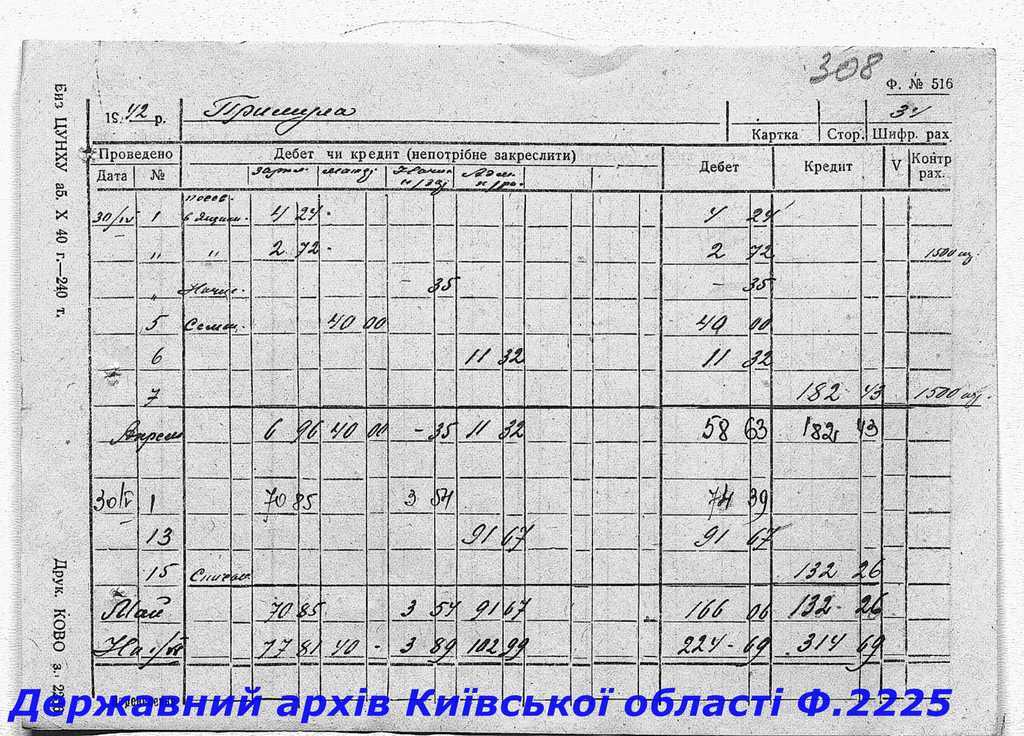 308
Ф. № 516
1942 р. Примула 31
Картка Стор. Шифр. рах
Проведено Дебет чи кредит (непотрібне закреслити) Дебет Кредит V Контр рах.
Дата №
30/IV 1 посев. 4 24 - 4 24
" " 2 72 - 2 72 1500
" Начис. - 35 - 35
5 Семен. 40 00 40 00
6 11 32 11 32
7 182 - 43 1500
Апрель 6 96 40 00 - 35 11 32 58 63 182, 43
30/V 1 70 85 3 54 74 39
13 91 67 91 67
15 132 26
Май 70 85 3 54 91 67 166 06 132 - 26
На 77 81 40 - 3 89 102 99 224 - 69 314 69
Биз ЦУНХУ аб. X 40 г.—240 т.
Друк. КОВО з.
Державний архів Київської області Ф.2225